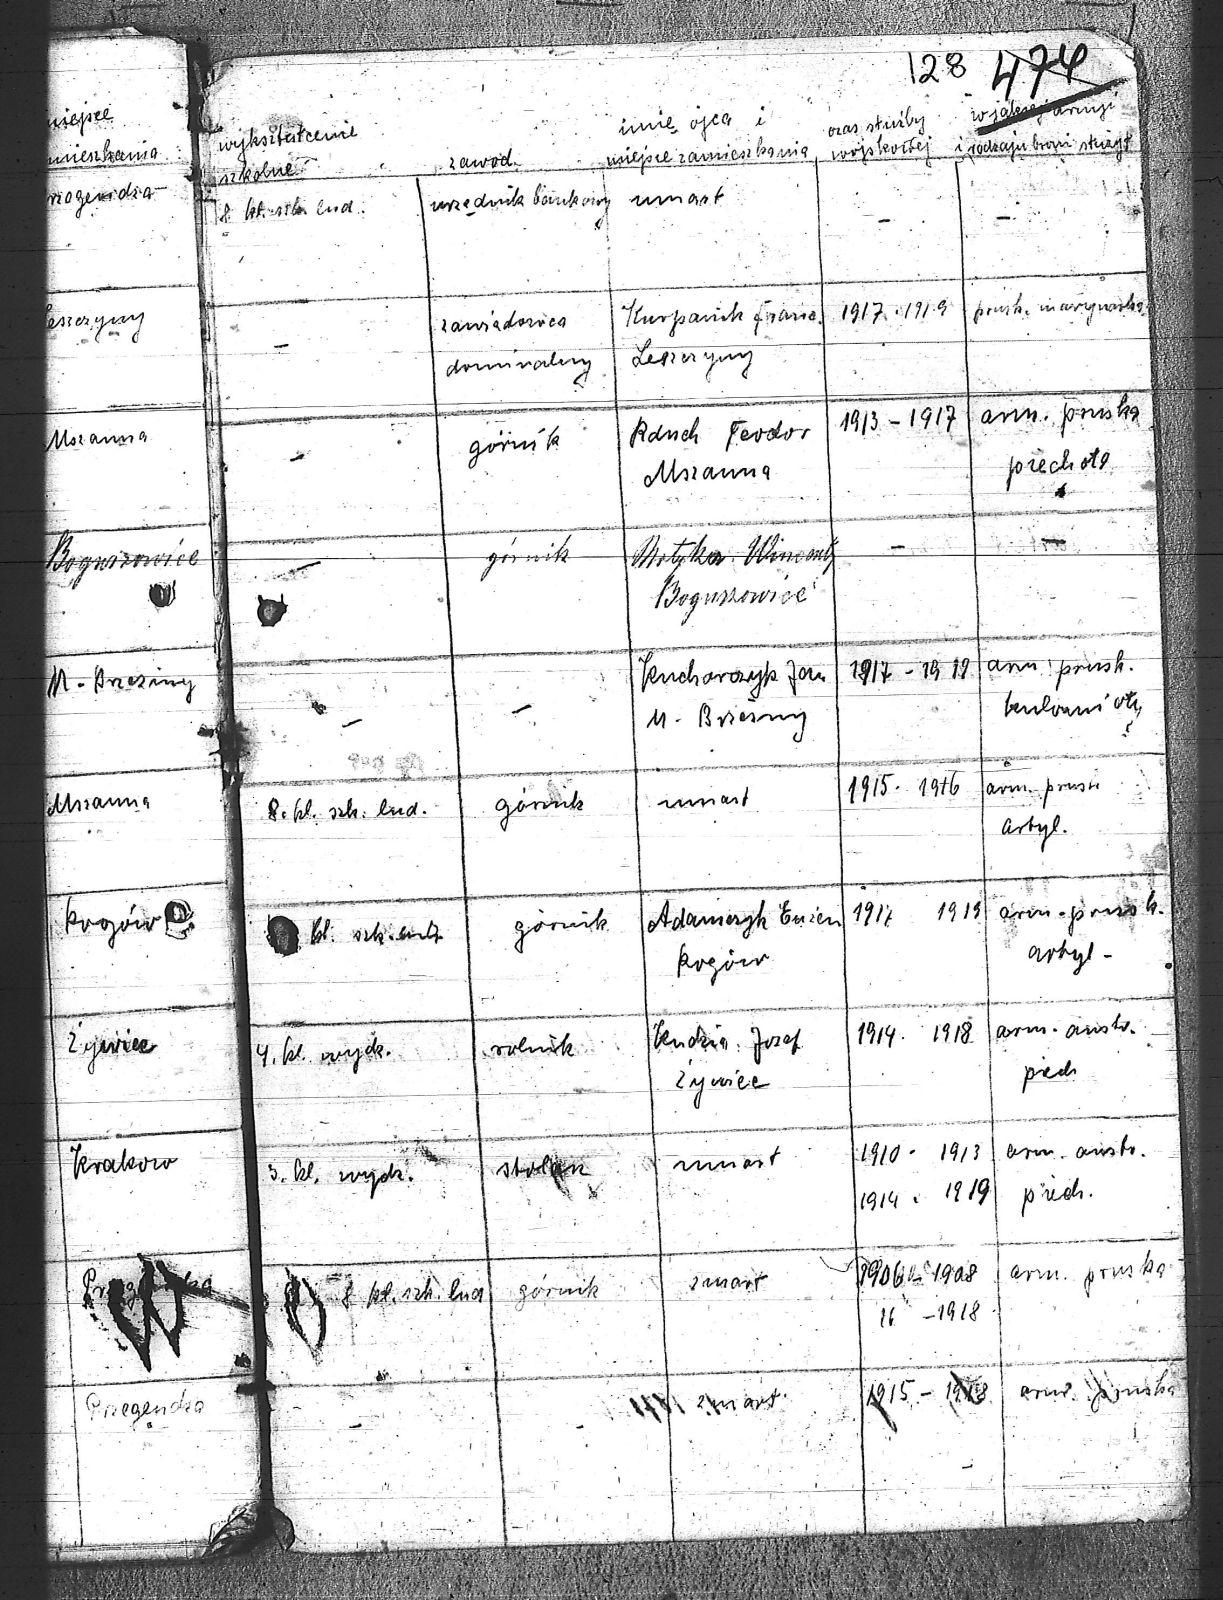 128 474
miejsce
imię ojca i
czas służby
w jakiej armji
zamieszkania
wykształcenie
szkolne
zawód
miejsce zamieszkania
wojskowej
i rodzaju broni służył
8 kl. szk. lud. urzędnik bankowy umarł - -
Leszczyny - zawiadowca Kurpanik Franc. 1917 - 1919 prusk. marynarka
dominalny Leszczyny
Mszanna - górnik Rduch Teodor 1913 - 1917 arm. pruska
Mszanna piechota
Boguszowice - górnik Motyka Wincenty - -
Boguszowice
M - Brzeziny - - Kucharczyk Jan 1917 - 1919 arm. prusk.
M - Brzeziny
Mszanna 8. kl. szk. lud. górnik umarł 1915 - 1916 arm. prusk
artyl.
Rogów kl. szk. lud. górnik Adamczyk 1917 1919 arm. prusk.
Rogów artyl -
Żywiec 4. kl. wydz. rolnik Kudzia Józef 1914 - 1918 arm. austr.
Żywiec piech
Krakow 3. kl. wydz. stolarz umarł 1910 - 1913 arm. austr.
1914 - 1919 piech.
8 kl. szk. lud górnik zmarł 1906 - 1908 arm. pruska
16 - 1918
Przegendza - zmarł 1915 - 1918 arm. pruska
-